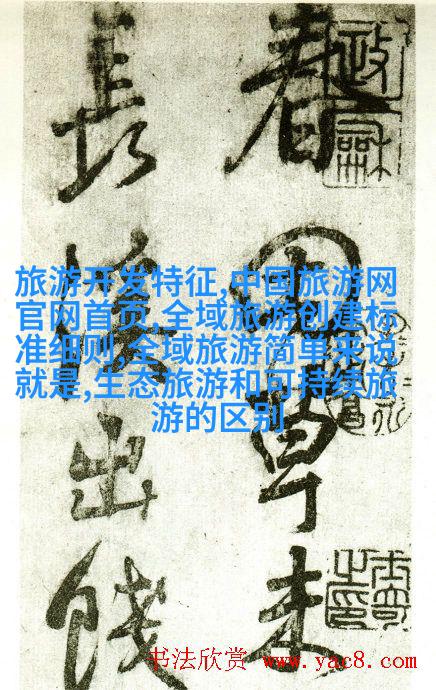 春田草未
長溪出餞
政龢
旅游开发特征,中国旅游网
官网首页,全域旅游创建标
准细则,全域旅游简单来说
就是,生态旅游和可持续旅
游的区别
书法欣赏 www.yac8.com